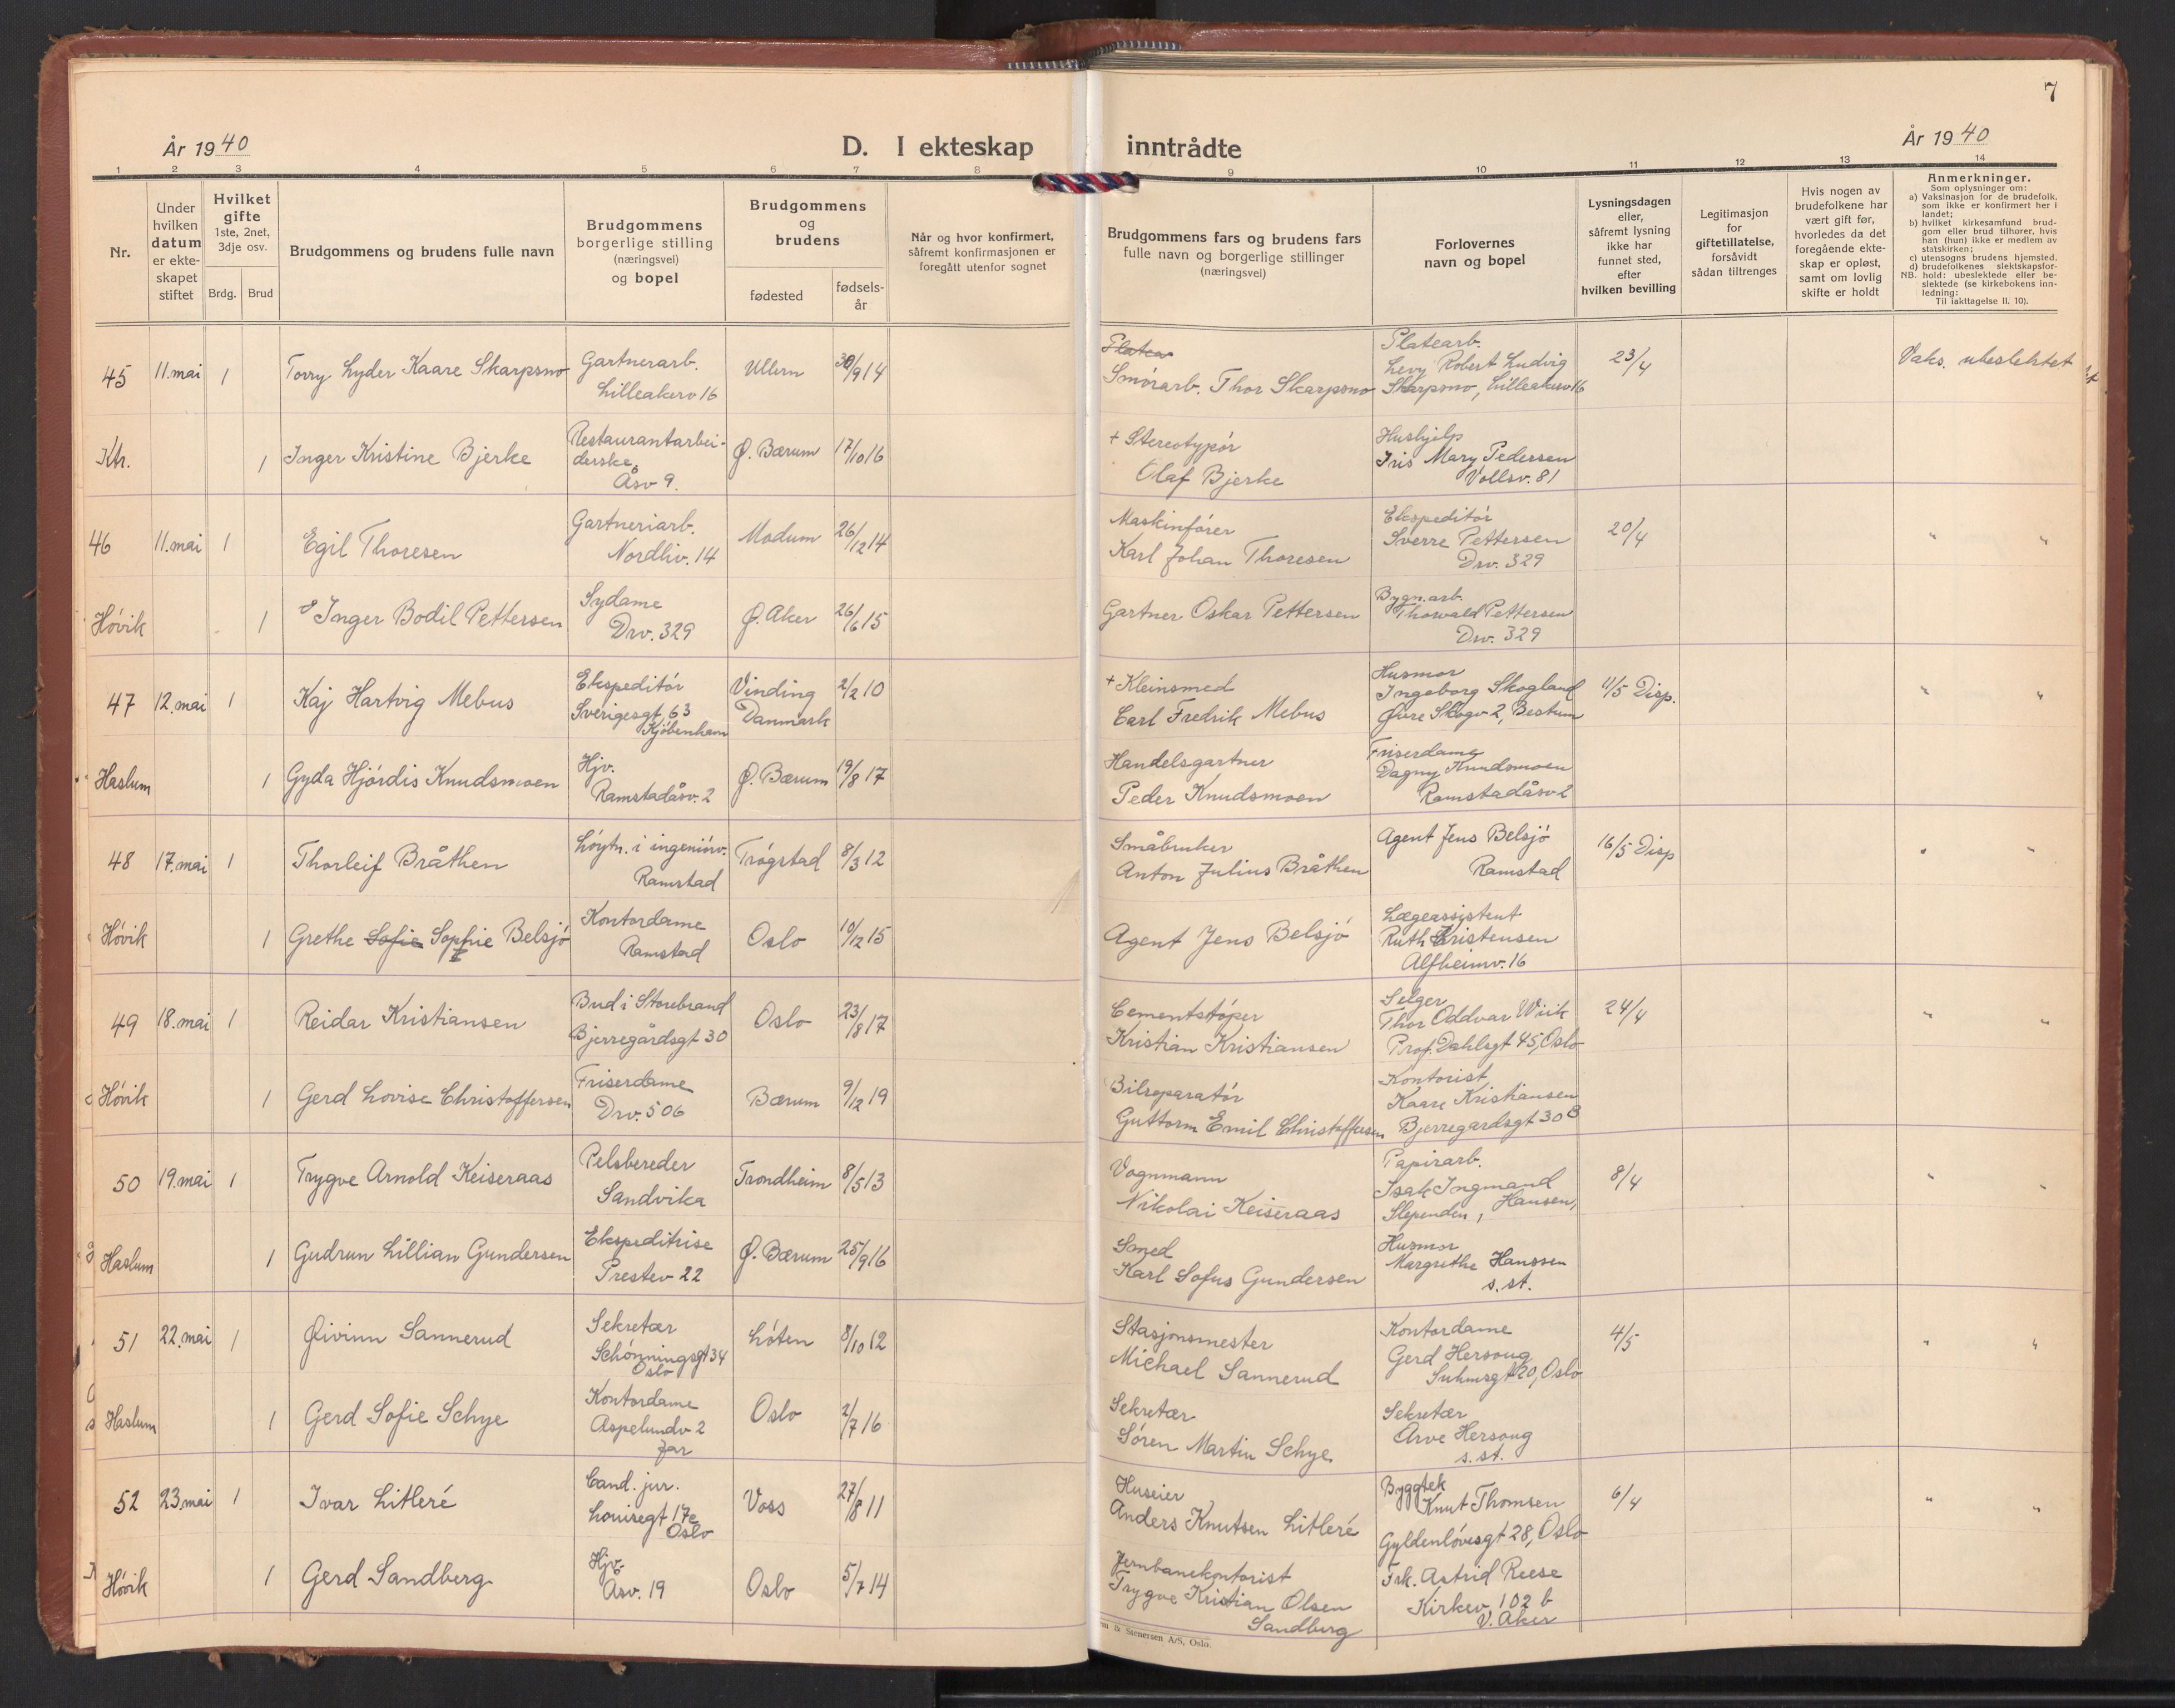 7
År 1940
D. I ekteskap inntrådte
År 1940
1 2 3 4 5 6 7 8 9 10 11 12 13 14
Nr.
Under
hvilken
datum
er ekte-
skapet
stiftet
Hvilket
gifte
1ste, 2net,
3dje osv.
Brdg. Brud
Brudgommens og brudens fulle navn
Brudgommens
borgerlige stilling
(næringsvei)
og bopel
Brudgommens
og
brudens
fødested
fødsels-
år
Når og hvor konfirmert,
såfremt konfirmasjonen er
foregått utenfor sognet
Brudgommens fars og brudens fars
fulle navn og borgerlige stillinger
(næringsvei)
Forlovernes
navn og bopel
Lysningsdagen
eller,
såfremt lysning
ikke har
funnet sted,
efter
hvilken bevilling
Legitimasjon
for
giftetillatelse,
forsåvidt
sådan tiltrenges
Hvis nogen av
brudefolkene har
vært gift før,
hvorledes da det
foregående ekte-
skap er opløst,
samt om lovlig
skifte er holdt
Anmerkninger.
Som oplysninger om:
a) Vaksinasjon for de brudefolk,
som ikke er konfirmert her i
landet;
b) hvilket kirkesamfund brud-
gom eller brud tilhører, hvis
han (hun) ikke er medlem av
statskirken;
c) utensogns brudens hjemsted.
d) brudefolkenes slektskapsfor-
NB. hold: ubeslektede eller be-
slektede (se kirkebokens inn-
ledning:
Til iakttagelse II. 10).
45 11.mai 1 Torry Lyder Kaare Skarpsno
Gartnerarb.
Lilleakerv 16
Ullern 30/9 14
Platea
Smørarb. Thor Skarpsno
Platearb.
Levy Robert Ludvig
Skarpsno, Lilleakerv 16
23/4
Vaks. ubeslektet
Ktr. 1 Inger Kristine Bjerke
Restaurantarbei-
derske,
Åsv 9.
Ø. Bærum 17/10 16
+ Stereotypør
Olaf Bjerke
Hushjelp
Iris Mary Pedersen
Vollsv. 81
46 11.mai 1 Egil Thoresen
Gartneriarb.
Nordliv. 14
Modum 26/12 14
Maskinfører
Karl Johan Thoresen
Ekspeditør
Sverre Pettersen
Drv. 329
20/4
" "
Høvik 1 Inger Bodil Pettersen
Sydame
Drv. 329
Ø. Aker 26/6 15
Gartner Oskar Pettersen
Bygn.arb.
Thorvald Pettersen
Drv. 329
47 12.mai 1 Kaj Hartvig Mebus
Ekspeditør
Sverigesgt 63
Kjøbenhavn
Vinding
Danmark
2/2 10
+ Kleinsmed
Carl Fredrik Mebus
Husmor
Ingeborg Skogland
Øvre Skogv 2, Bestum
11/5 Disp.
" "
Haslum 1 Gyda Hjørdis Knudsmoen
Hjv.
Ramstadåsv. 2
Ø. Bærum 19/8 17
Handelsgartner
Peder Knudsmoen
Friserdame
Dagny Knudsmoen
Ramstadåsv 2
48 17.mai 1 Thorleif Bråthen
Løytn. i ingeniørv.
Ramstad
Trøgstad 8/3 12
Småbruker
Anton Julius Bråthen
Agent Jens Belsjø
Ramstad
16/5 Disp
" "
Høvik 1 Grethe Sofie Sophie Belsjø
Kontordame
Ramstad
Oslo 10/12 15
Agent Jens Belsjø
Lægeassistent
Ruth Kristensen
Alfheimv. 16
49 18.mai 1 Reidar Kristiansen
Bud i Storebrand
Bjerregårdsgt 30
Oslo 23/8 17
Cementstøper
Kristian Kristiansen
Selger
Thor Oddvar Wiik
Prof. Dahlsgt 45, Oslo
24/4
" "
Høvik 1 Gerd Lovise Christoffersen
Friserdame
Drv. 506
Bærum 9/12 19
Bilreparatør
Guttorm Emil Christoffersen
Kontorist
Kaare Kristiansen
Bjerregardsgt 30 B
50 19.mai 1 Trygve Arnold Keiseraas
Pelsbereder
Sandvika
Trondheim 8/5 13
Vognmann
Nikolai Keiseraas
Papirarb.
Isak Ingmand
Slependen, Hansen,
8/4
" "
Haslum 1 Gudrun Lillian Gundersen
Ekspeditrise
Prestev 22
Ø. Bærum 25/9 16
Smed
Karl Sofus Gundersen
Husmor
Margrethe Hanssen
s. st.
51 22.mai 1 Øivinn Sannerud
Sekretær
Schønningsgt 34
Oslo
Løten 8/10 12
Stasjonsmester
Michael Sannerud
Kontordame
Gerd Hersoug
Suhmsgt 20, Oslo
4/5
" "
Haslum 1 Gerd Sofie Schye
Kontordame
Aspelundv 2
Jar
Oslo 2/7 16
Sekretær
Søren Martin Schye
Sekretær
Arve Hersoug
s. st.
52 23.mai 1 Ivar Litleré
Cand. jur.
Louisegt 17e
Oslo
Voss 27/8 11
Huseier
Anders Knutsen Litleré
Byggtek
Knut Thomsen
Gyldenløvesgt 28, Oslo
6/4
" "
Høvik 1 Gerd Sandberg
Hjv.
Åsv. 19
Oslo 5/7 14
Jernbanekontorist
Trygve Kristian Olsen
Sandberg
Frk. Astrid Reese
Kirkev. 102 b
V. Aker
& Stenersen A/S, Oslo.